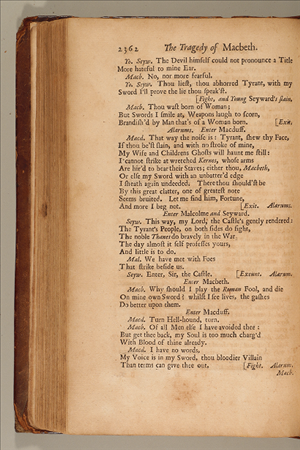 2362 The Tragedy of Macbeth.
Yo. Seyw. The Devil himself could not pronounce a Title
More hateful to mine Ear.
Macb. No, nor more fearful.
Yo. Seyw. Thou liest, thou abhorred Tyrant, with my
Sword I'll prove the lie thou speak'st.
[Fight, and Young Seyward's slain.
Macb. Thou wast born of Woman;
But Swords I smile at, Weapons laugh to scorn,
Brandish'd by Man that's of a Woman born. [Exit.
Alarums. Enter Macduff.
Macd. That way the noise is: Tyrant, shew thy Face,
If thou be'st slain, and with no stroke of mine,
My Wife and Childrens Ghosts will haunt me still:
I cannot strike at wretched Kernes, whose arms
Are hir'd to bear their Staves; either thou, Macbeth,
Or else my Sword with an unbatter'd edge
I sheath again undeeded. There thou should'st be
By this great clatter, one of greatest note
Seems bruited. Let me find him, Fortune,
And more I beg not. [Exit. Alarums.
Enter Malcolme and Seyward.
Seyw. This way, my Lord, the Castle's gently rendred:
The Tyrant's People, on both sides do fight,
The noble Thanes do bravely in the War.
The day almost it self professes yours,
And little is to do.
Mal. We have met with Foes
That strike beside us.
Seyw. Enter, Sir, the Castle. [Exeunt. Alarum.
Enter Macbeth.
Macb. Why should I play the Roman Fool, and die
On mine own Sword? whilst I see lives, the gashes
Do better upon them.
Enter Macduff.
Macd. Turn Hell-hound, turn.
Macb. Of all Men else I have avoided thee:
But get thee back, my Soul is too much charg'd
With Blood of thine already.
Macd. I have no words,
My Voice is in my Sword, thou bloodier Villain
Than terms can give thee out. [Fight. Alarum.
Macb.